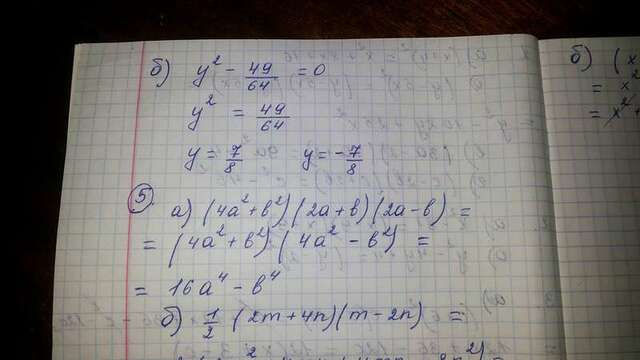 б) y² - 49/64 = 0
y² = 49/64
y = 7/8 y = -7/8
5) а) (4a² + b²)(2a + b)(2a - b) =
= (4a² + b²)(4a² - b²) =
= 16a⁴ - b⁴
б) 1/2 (2m + 4n)(m - 2n) =
б) (x
= x²
= x²